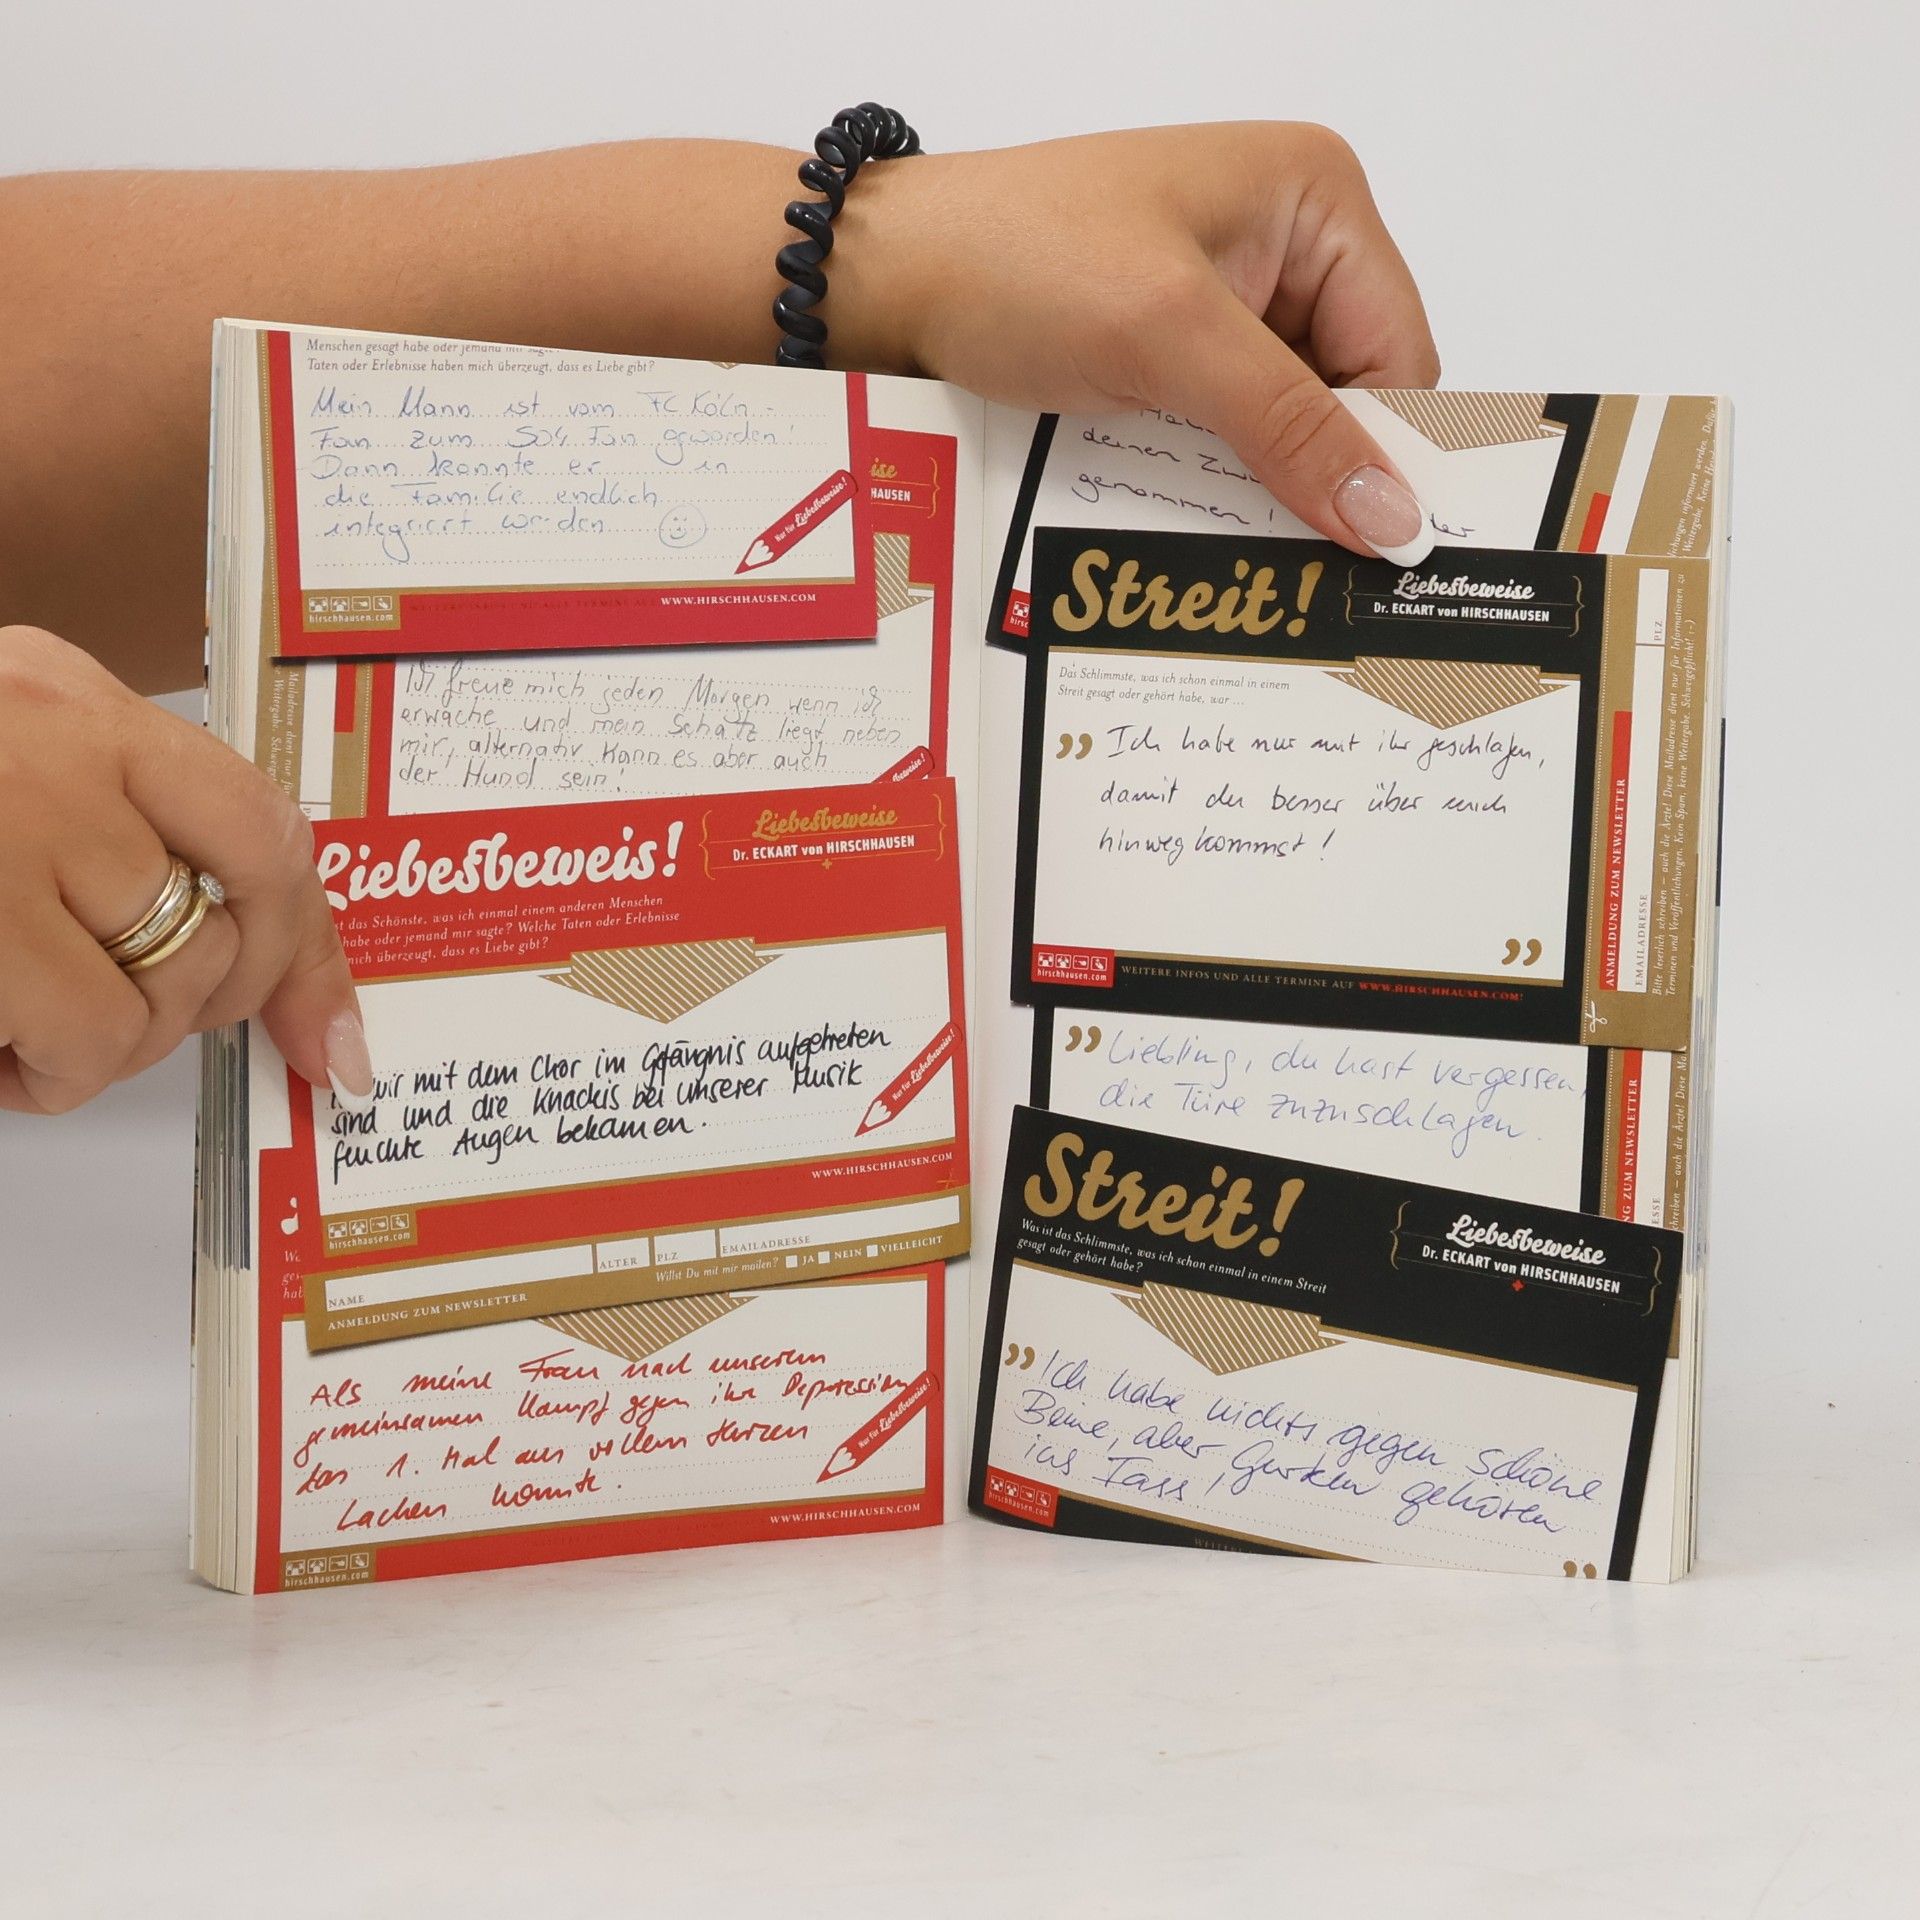 Menschen gesagt habe oder jemand mir sagte?
Taten oder Erlebnisse haben mich überzeugt, dass es Liebe gibt?
Mein Mann ist vom FC Köln -
Fan zum S04 Fan geworden!
Dann konnte er in
die Familie endlich
integriert werden
Nur für Liebesbeweise!
hirschhausen.com
WEITERE INFOS UND ALLE TERMINE AUF WWW.HIRSCHHAUSEN.COM
ise
HAUSEN
Ich freue mich jeden Morgen wenn ich
erwache und mein Schatz liegt neben
mir, alternativ kann es aber auch
der Hund sein!
beweise!
Liebesbeweis!
Liebesbeweise
Dr. ECKART von HIRSCHHAUSEN
st das Schönste, was ich einmal einem anderen Menschen
habe oder jemand mir sagte? Welche Taten oder Erlebnisse
mich überzeugt, dass es Liebe gibt?
wir mit dem Chor im Gfängnis aufgetreten
sind und die Knackis bei unserer Musik
feuchte Augen bekamen.
Nur für Liebesbeweise!
WWW.HIRSCHHAUSEN.COM
hirschhausen.com
NAME
ALTER
PLZ
EMAILADRESSE
ANMELDUNG ZUM NEWSLETTER
Willst Du mit mir mailen? JA NEIN VIELLEICHT
We
ge
hab
Als meine Frau nach unserem
gemeinsamen Kampf gegen ihre Depression
das 1. Mal aus vollem Herzen
lachen konnte.
Nur für Liebesbeweise!
WWW.HIRSCHHAUSEN.COM
hirschhausen.com
deinen
genommen!
der
hirsc
Streit!
Liebesbeweise
Dr. ECKART von HIRSCHHAUSEN
Das Schlimmste, was ich schon einmal in einem
Streit gesagt oder gehört habe, war ...
” Ich habe nur mit ihr geschlafen,
damit du besser über mich
hinweg kommst!
”
hirschhausen.com
WEITERE INFOS UND ALLE TERMINE AUF WWW.HIRSCHHAUSEN.COM!
PLZ
ANMELDUNG ZUM NEWSLETTER
EMAILADRESSE
Bitte leserlich schreiben – auch die Ärzte! Diese Mailadresse dient nur für Informationen zu
Terminen und Veröffentlichungen. Kein Spam, keine Weitergabe. Schweigepflicht! :-)
” Liebling, du hast vergessen,
die Türe zuzuschlagen.
NG ZUM NEWSLETTER
ESSE
Streit!
Liebesbeweise
Dr. ECKART von HIRSCHHAUSEN
Was ist das Schlimmste, was ich schon einmal in einem Streit
gesagt oder gehört habe?
” Ich habe nichts gegen schöne
Beine, aber Gurken gehören
ins Fass
”
hirschhausen.com